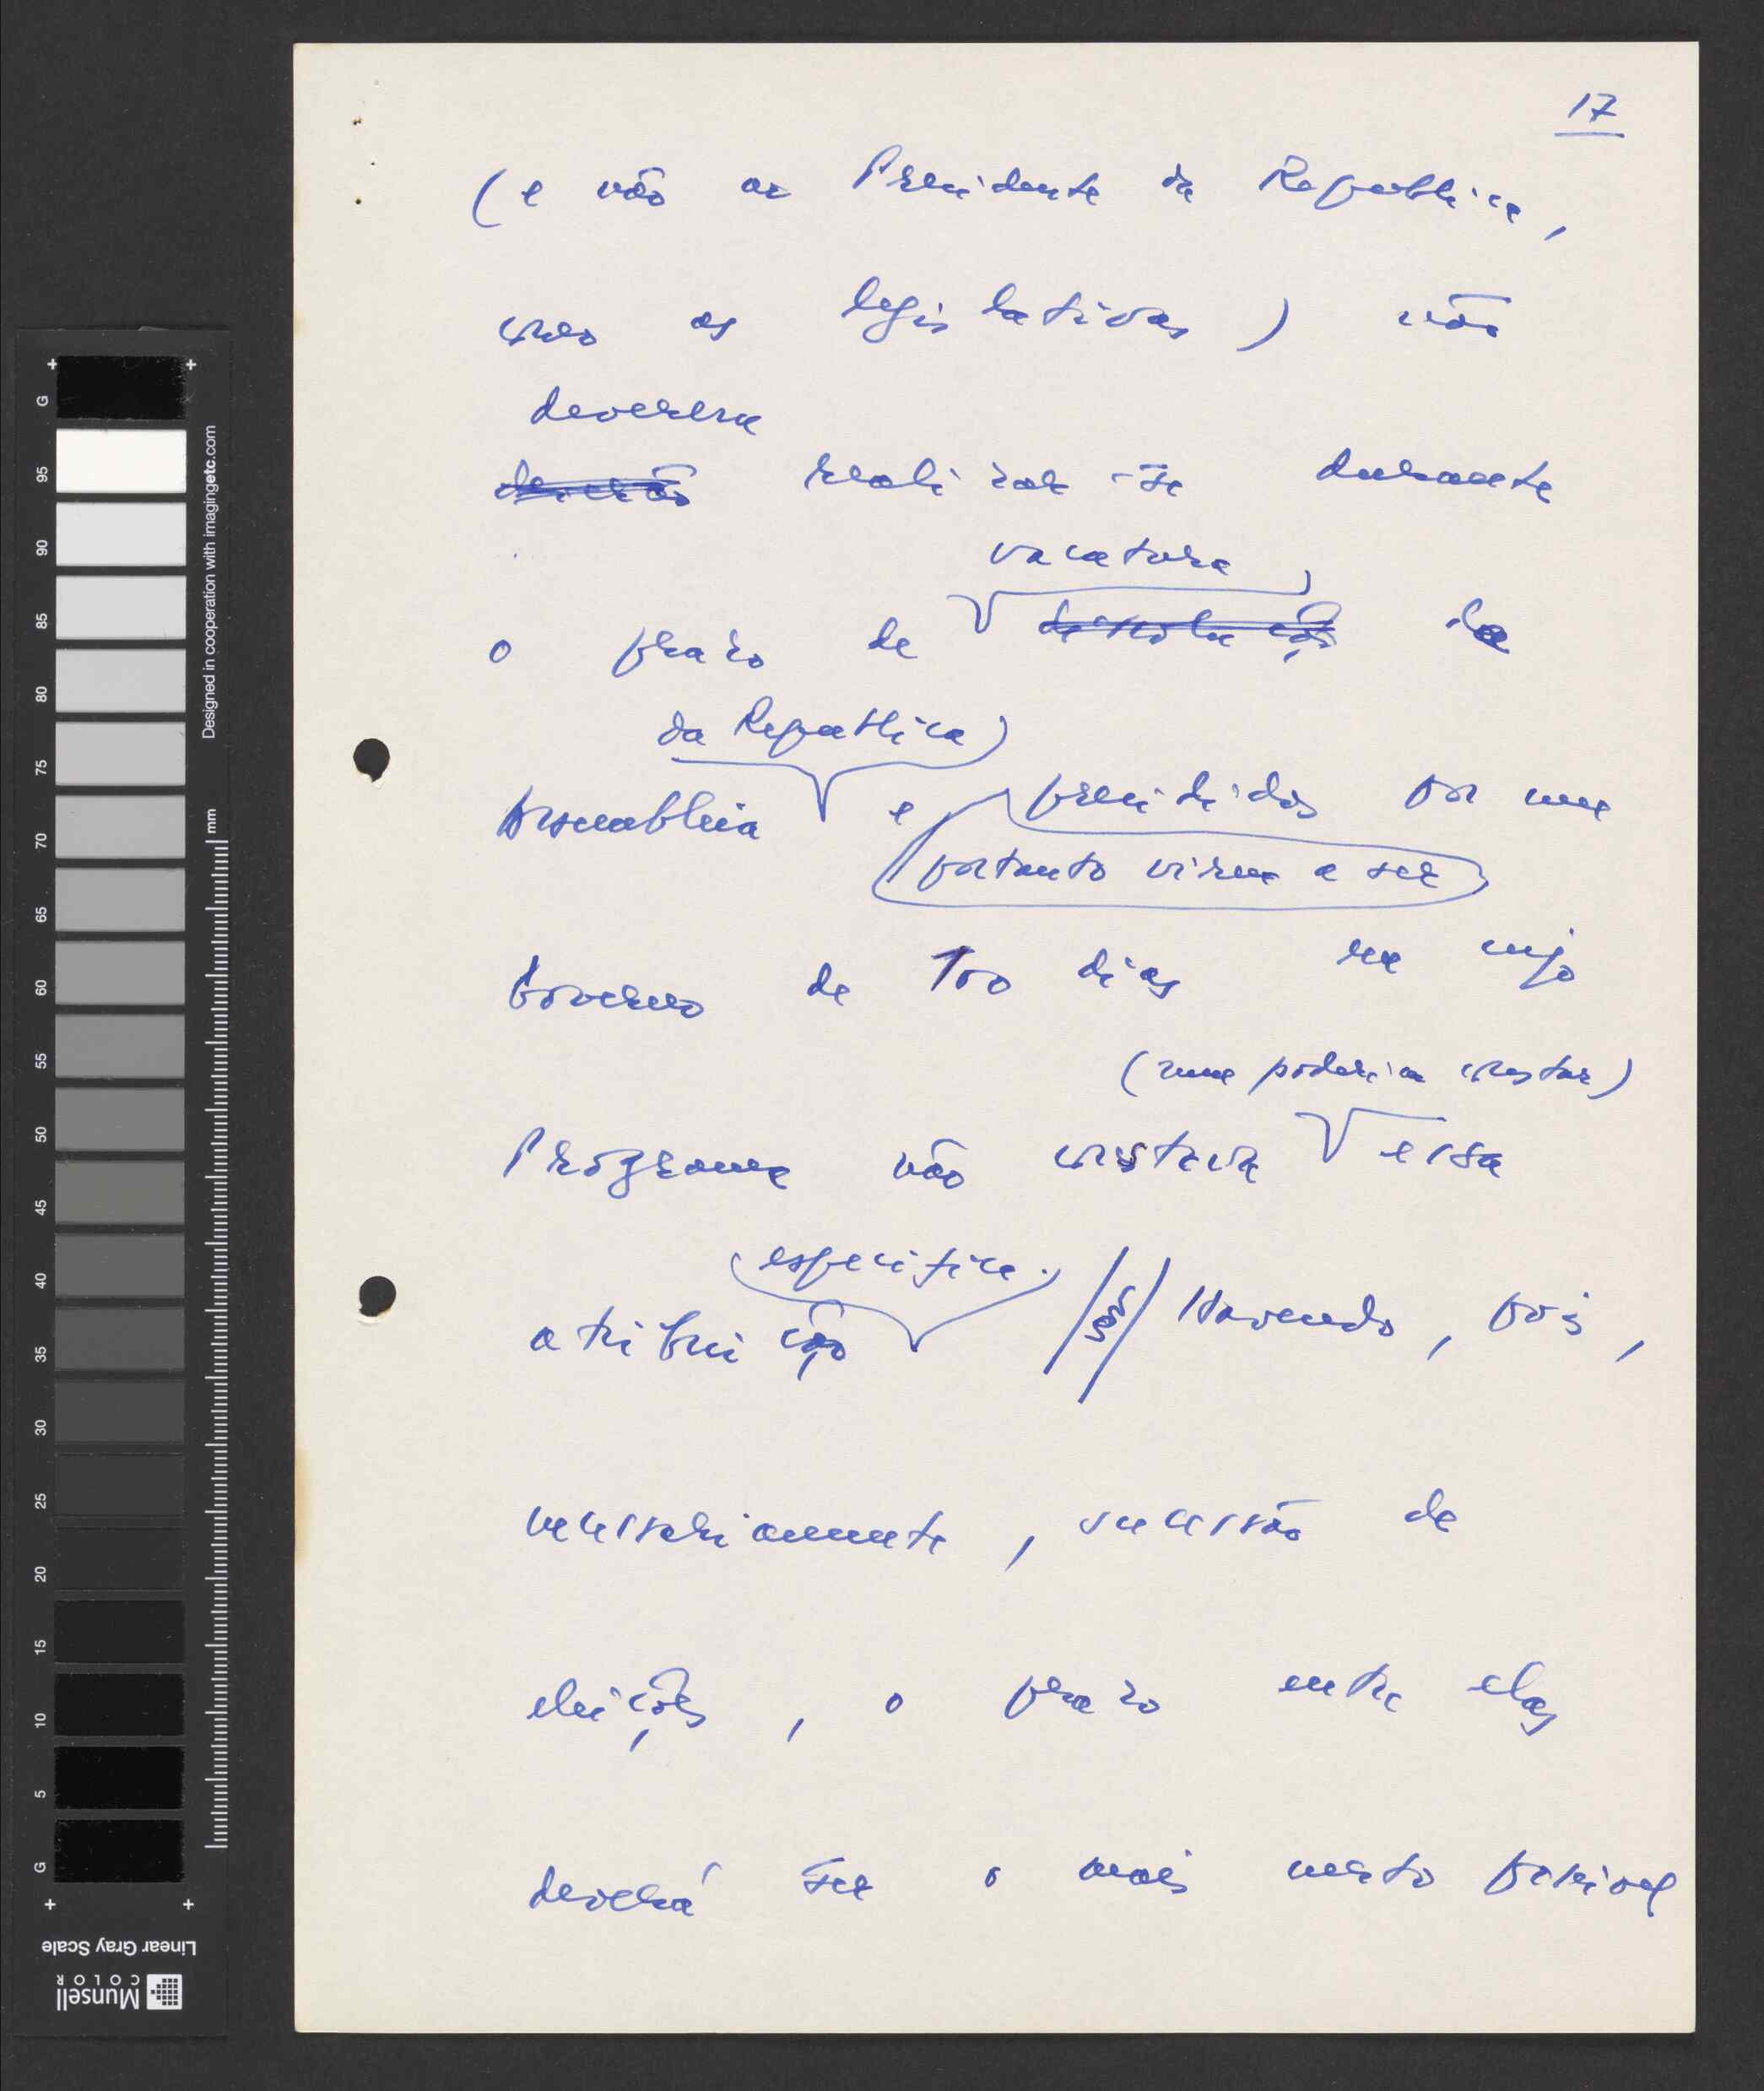 17
(e não ao Presidente da República,
como as legislativas) não
deverem
deverão realizar-se durante
vacatura
o prazo de dissolução da
da República
Assembleia e presididas por um
portanto virem a ser
Governo de 100 dias em cujo
(nem poderia constar)
Programa não constava essa
específica.
atribuição /§/ Havendo, pois,
necessariamente, sucessão de
eleições, o prazo entre elas
deverá ser o mais curto possível
G
95
90
85
80
75
70
65
60
55
50
45
40
35
30
25
20
15
10
5
G
Designed in cooperation with imagingetc.com
mm
Linear Gray Scale
Munsell
COLOR